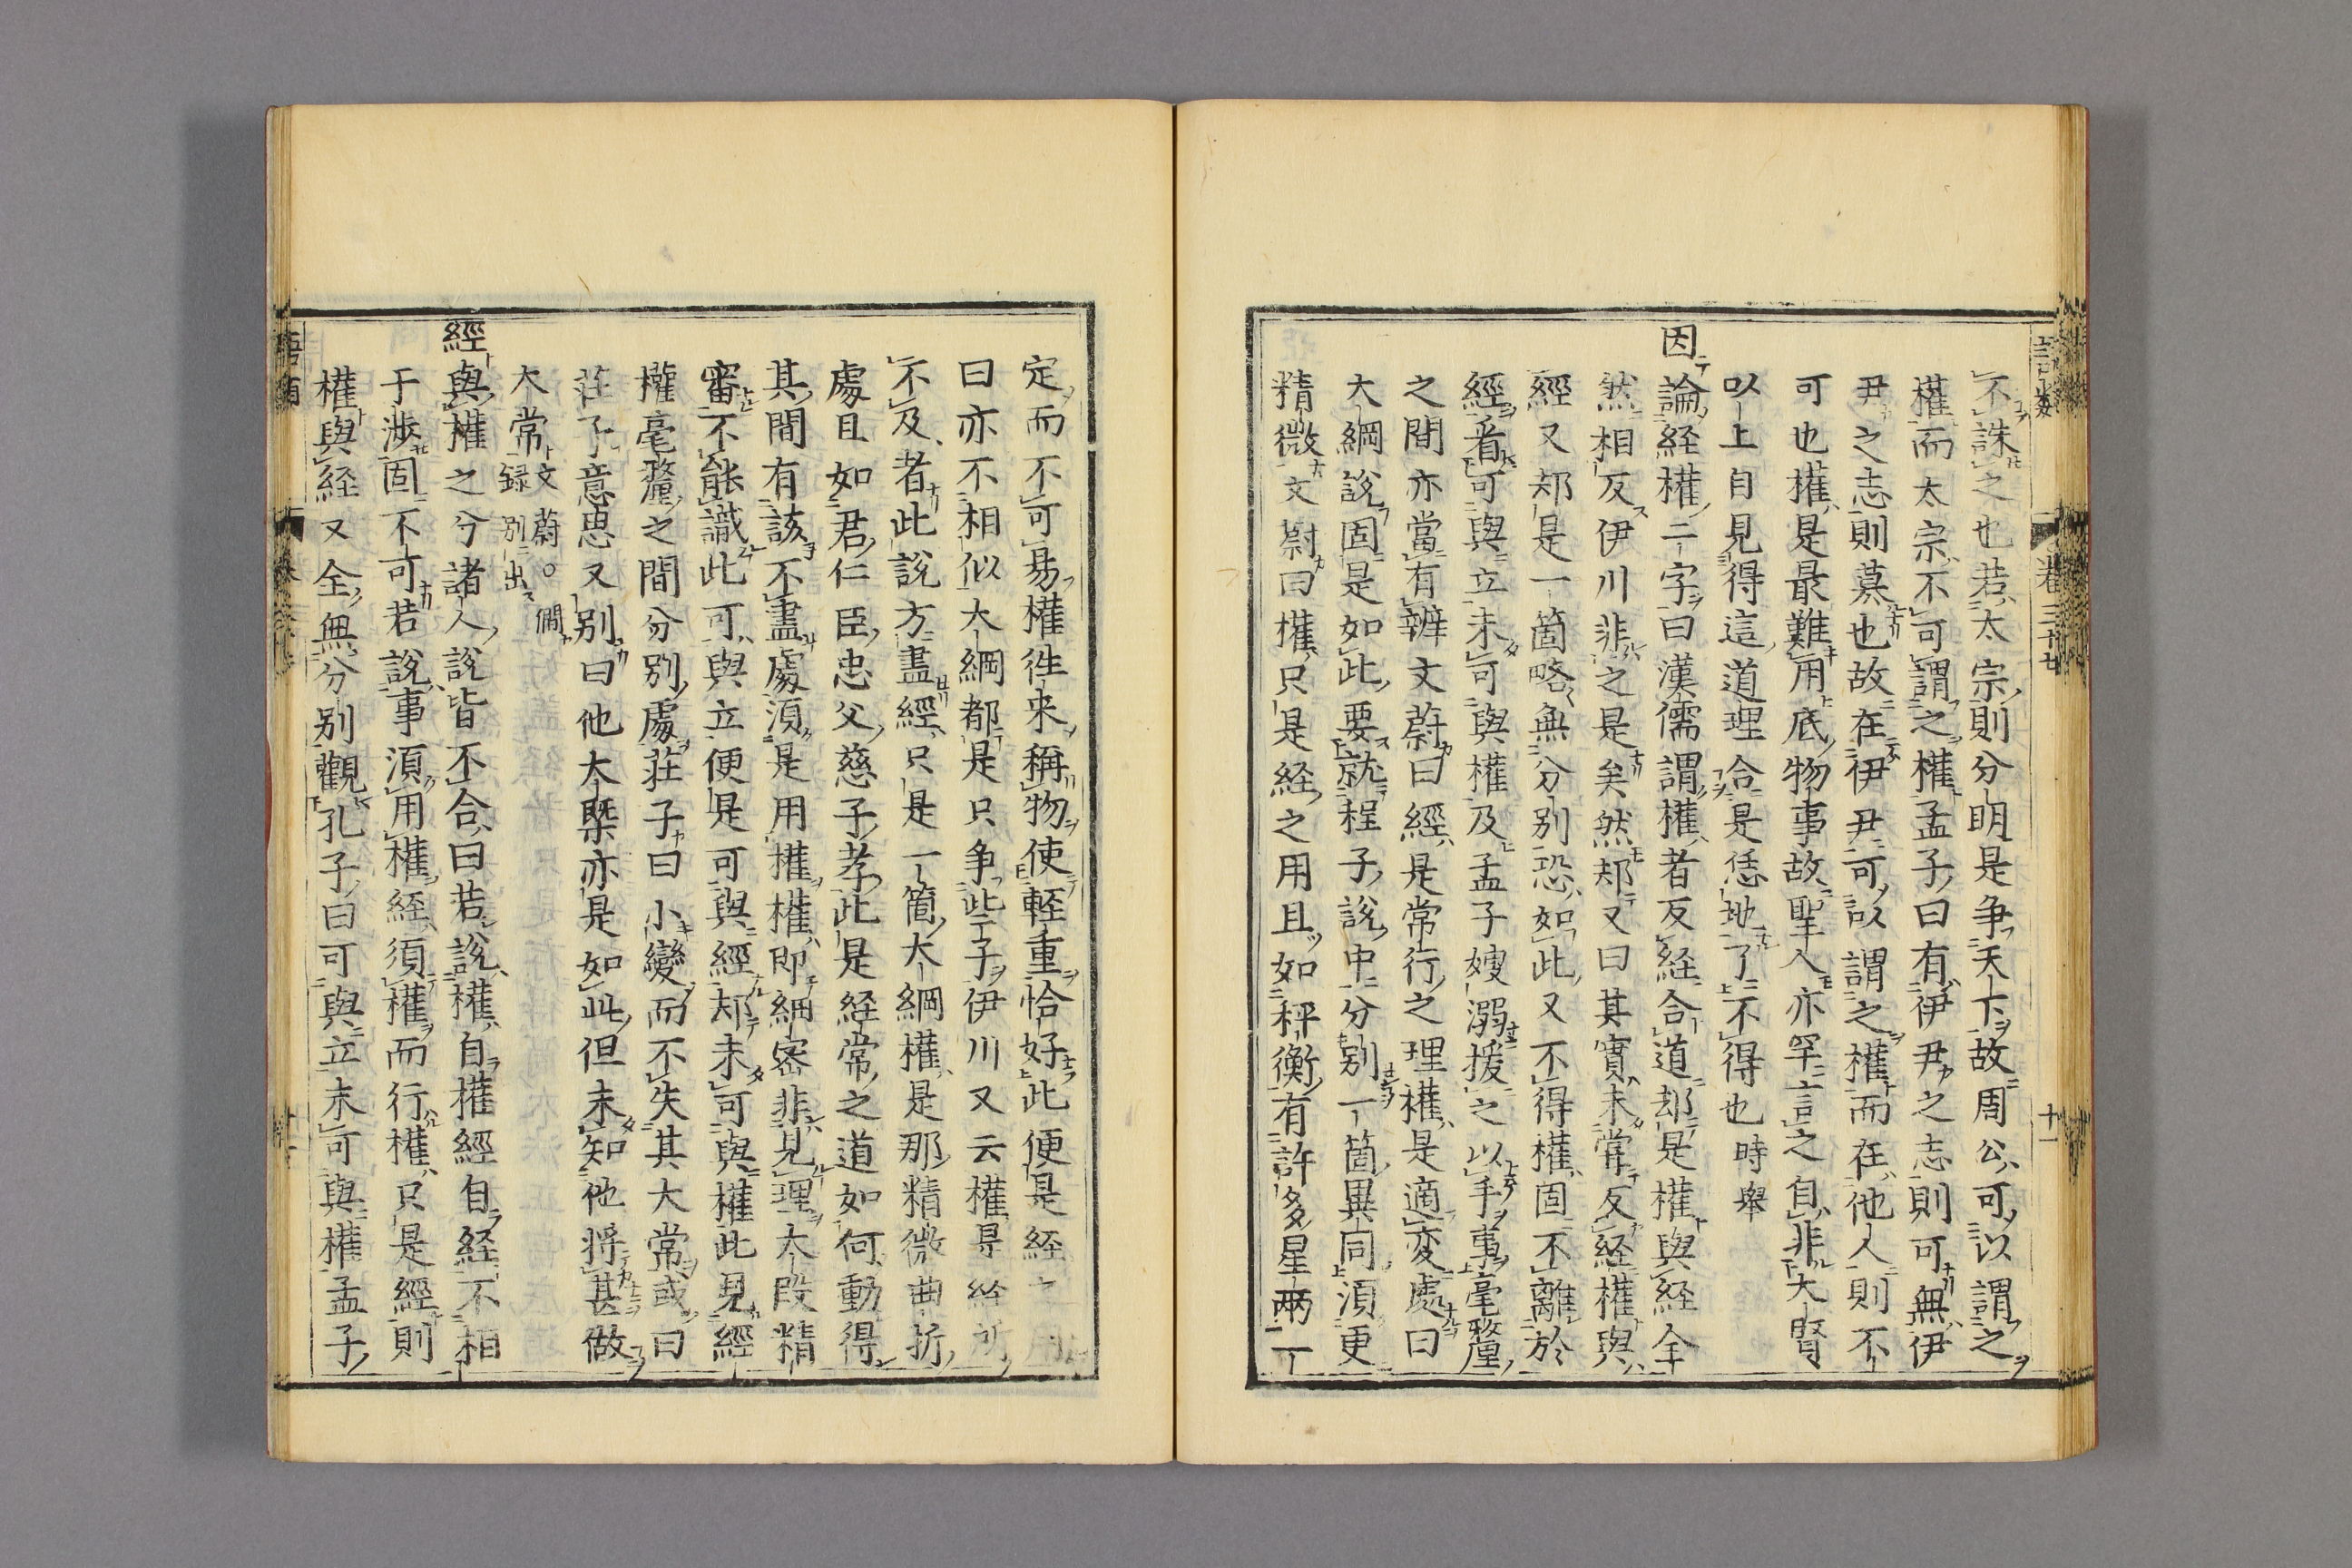 語類
卷三十七
十一
不誅之也若太宗則分明是爭天下故周公可以謂之
權而太宗不可謂之權孟子曰有伊尹之志則可無伊
尹之志則簒也故在伊尹可以謂之權而在他人則不
可也權是最難用底物事故聖人亦罕言之自非大賢
以上自見得這道理合是恁地了不得也時舉
因論経權二字曰漢儒謂權者反経合道却是權與経全
然相反伊川非之是矣然却又曰其實未嘗反経權與
經又却是一箇略無分別恐如此又不得權固不離於
經看可與立未可與權及孟子嫂溺援之以手事毫釐
之間亦當有辨文蔚曰經是常行之理權是適変處曰
大綱說固是如此要就程子說中分別一箇異同須更
精微文蔚曰權只是経之用且如秤衡有許多星兩一
定而不可易權徃来稱物使輕重恰好此便是経之用
曰亦不相似大綱都是只争些子伊川又云權是経所
不及者此說方盡經只是一箇大綱權是那精微曲折
處且如君仁臣忠父慈子孝此是経常之道如何動得
其間有該不盡處須是用權權即細密非見理大段精
審不能識此可與立便是可與經却未可與權此見經
權毫釐之間分別處莊子曰小變而不失其大常或曰
莊子意思又別曰他大槩亦是如此但未知他將甚做
大常文蔚○僩録別出
經與權之分諸人說皆不合曰若說權自權經自経不相
于渉固不可若說事須用權経須權而行權只是經則
權與経又全無分別觀孔子曰可與立未可與權孟子
語類